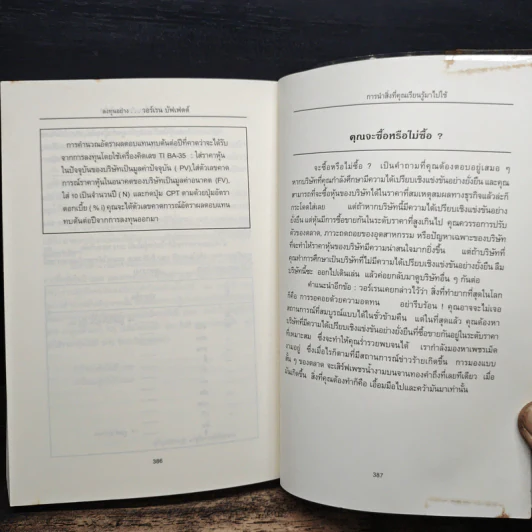 ลงทุนอย่าง วอร์เรน บัฟเฟตต์
การคำนวณอัตราผลตอบแทนทบต้นต่อปีที่คาดว่าจะได้รับ
จากการลงทุนโดยใช้เครื่องคิดเลข TI BA-35 : ใส่ราคาหุ้น
ในปัจจุบันของบริษัทเป็นมูลค่าปัจจุบัน ( PV),ใส่ตัวเลขคาด
การณ์ราคาหุ้นในอนาคตของบริษัทเป็นมูลค่าอนาคต (FV),
ใส่ 10 เป็นจำนวนปี ( N) และกดปุ่ม CPT ตามด้วยปุ่มอัตรา
ดอกเบี้ย ( %i) คุณจะได้ตัวเลขคาดการณ์อัตราผลตอบแทน
ทบต้นต่อปีจากการลงทุนออกมา
386
การนำสิ่งที่คุณเรียนรู้มาไปใช้
คุณจะซื้อหรือไม่ซื้อ ?
จะซื้อหรือไม่ซื้อ ? เป็นคำถามที่คุณต้องตอบอยู่เสมอ ๆ
หากบริษัทที่คุณกำลังศึกษามีความได้เปรียบเชิงแข่งขันอย่างยั่งยืน และคุณ
สามารถที่จะซื้อหุ้นของบริษัทได้ในราคาที่สมเหตุสมผลทางธุรกิจแล้วล่ะก็
กระโดดใส่เลย แต่ถ้าหากบริษัทนี้มีความได้เปรียบเชิงแข่งขันอย่าง
ยั่งยืน แต่หุ้นมีการซื้อขายกันในระดับราคาที่สูงเกินไป คุณควรรอการปรับ
ตัวของตลาด, ภาวะถดถอยของอุตสาหกรรม หรือปัญหาเฉพาะของบริษัท
ที่จะทำให้ราคาหุ้นของบริษัทมีความน่าสนใจมากยิ่งขึ้น แต่ถ้าบริษัทที่
คุณทำการศึกษาเป็นบริษัทที่ไม่มีความได้เปรียบเชิงแข่งขันอย่างยั่งยืน ลืม
บริษัทนี้ซะ ออกไปเดินเล่น แล้วค่อยกลับมาดูบริษัทอื่น ๆ กันต่อ
คำแนะนำอีกข้อ: วอร์เรนเคยกล่าวไว้ว่า สิ่งที่ทำยากที่สุดในโลก
ก็คือ การรอคอยด้วยความอดทน อย่ารีบร้อน ! คุณอาจจะไม่เจอ
สถานการณ์ที่สมบูรณ์แบบได้ในชั่วข้ามคืน แต่ในที่สุดแล้ว คุณต้องหา
บริษัทที่มีความได้เปรียบเชิงแข่งขันอย่างยั่งยืนที่ซื้อขายกันอยู่ในระดับราคา
ที่เหมาะสม ซึ่งจะทำให้คุณร่ำรวยพบจนได้ เรากำลังมองหาเพชรเม็ด
งามอยู่ ซึ่งเมื่อไรก็ตามที่มีสถานการณ์ข่าวร้ายเกิดขึ้น การมองแบบ
สั้น ๆ ของตลาด จะเสิร์ฟเพชรน้ำงามบนจานทองคำถึงที่เลยทีเดียว เมื่อ
มันเกิดขึ้น สิ่งที่คุณต้องทำก็คือ เอื้อมมือไปและคว้ามันมาเท่านั้น
387